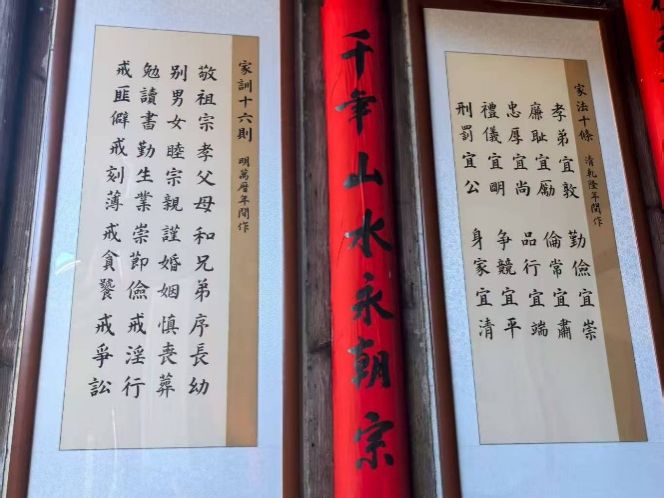 家法十條 清乾隆年間作
孝弟宜敦 勤儉宜崇
廉耻宜勵 倫常宜肅
忠厚宜尚 品行宜端
禮儀宜明 争競宜平
刑罰宜公 身家宜清
千年山水永朝宗
家訓十六則 明萬曆年間作
敬祖宗孝父母和兄弟序長幼
別男女睦宗親謹婚姻慎喪葬
勉讀書勤生業崇節儉戒淫行
戒匪僻戒刻薄戒貪饕戒爭訟